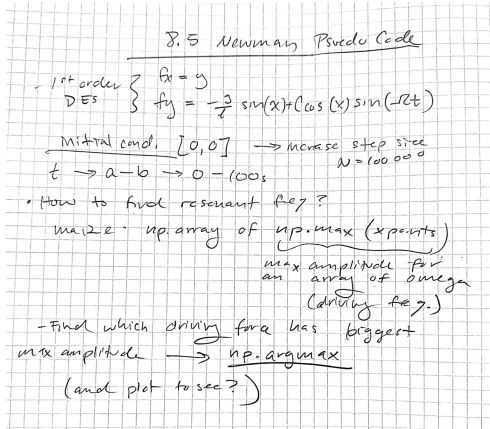 8.5 Newman Psuedo Code
1st order DEs { fx = y
fy = -g/l sin(x) + C cos(x) sin(Ωt)
Initial cond. [0,0] → increase step size
N = 100 000
t → a-b → 0-100s
• How to find resonant freq?
make np.array of np.max (xpoints)
max amplitude for
an array of omega
(driving freq.)
- Find which driving force has biggest
max amplitude → np.argmax
(and plot to see?)